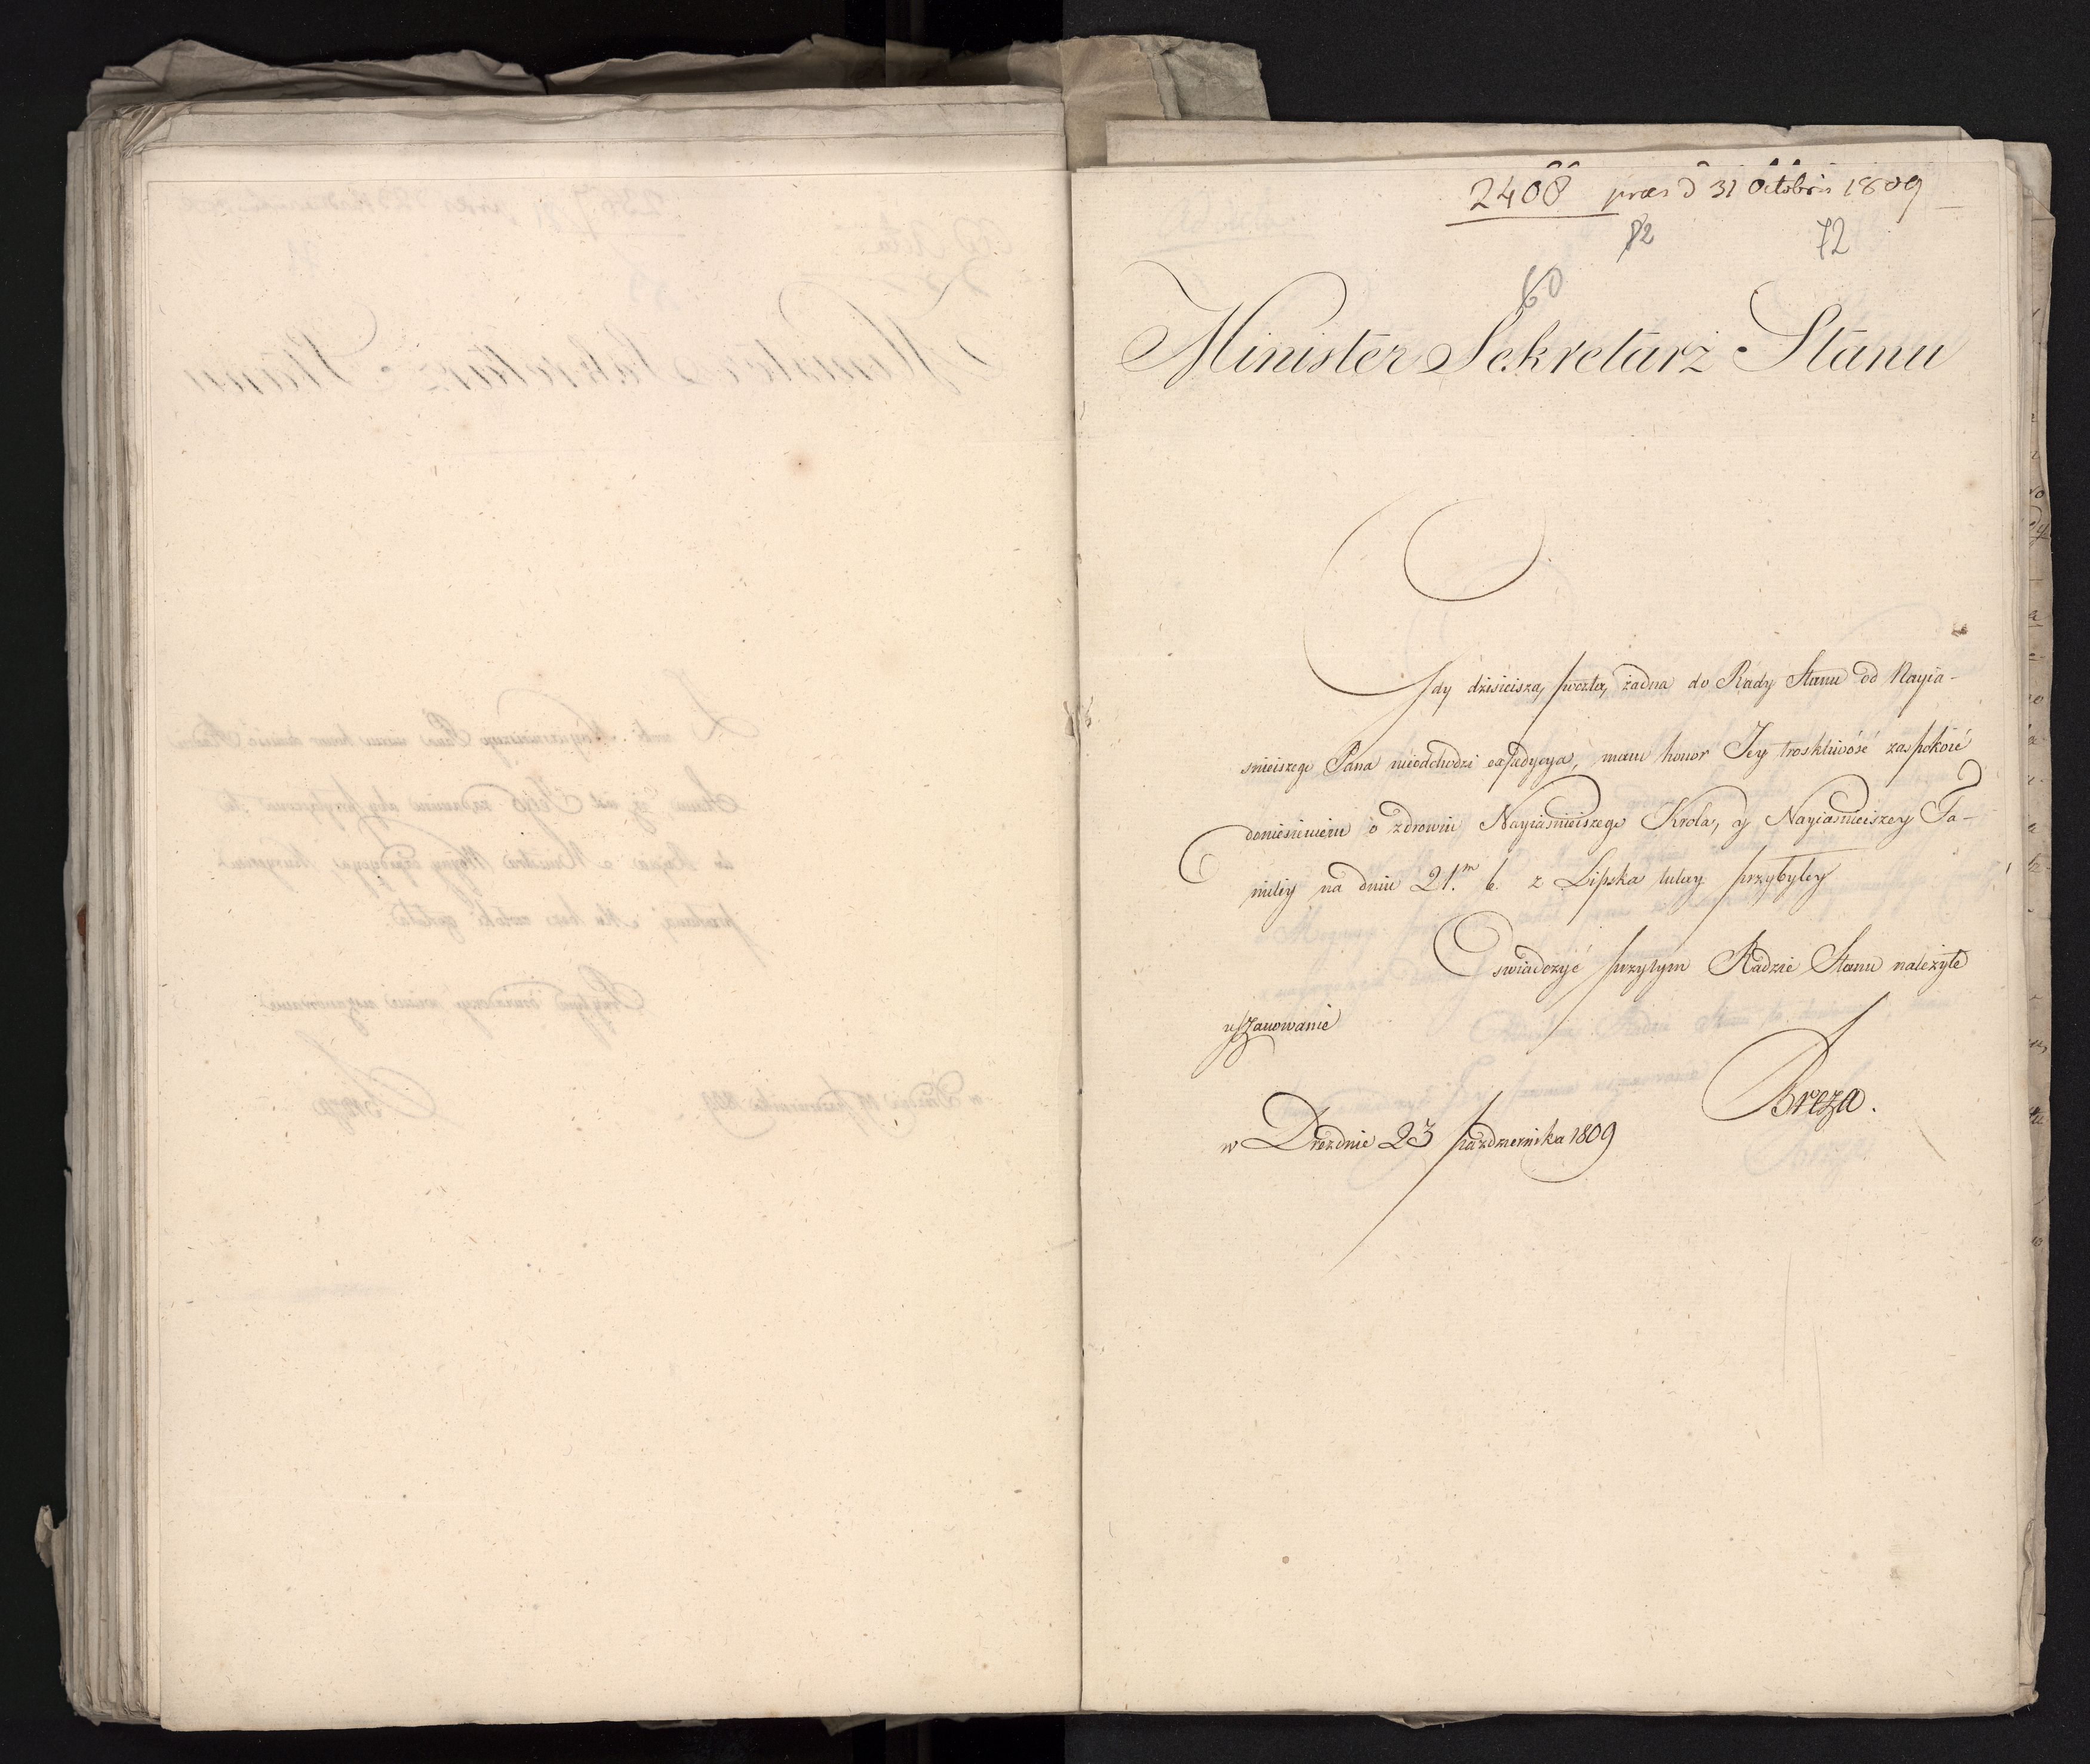 2408 præs d 31 Octobris 1809
82 72
60
Minister Sekretarz Stanu
Gdy dzisieiszą pocztą, żadna do Rady Stanu od Nayia-
śnieiszego Pana nieodchodzi expedycya, mam honor Jey troskliwość zaspokoić
doniesieniem o zdrowiu Nayiaśnieiszego Króla, y Nayiaśnieiszey Fa-
miliy na dniu 21.m b. z Lipska tutay przybyłey
Oswiadczyć przytym Radzie Stanu należyte
uszanowanie
Breza.
w Dreznie 23 października 1809